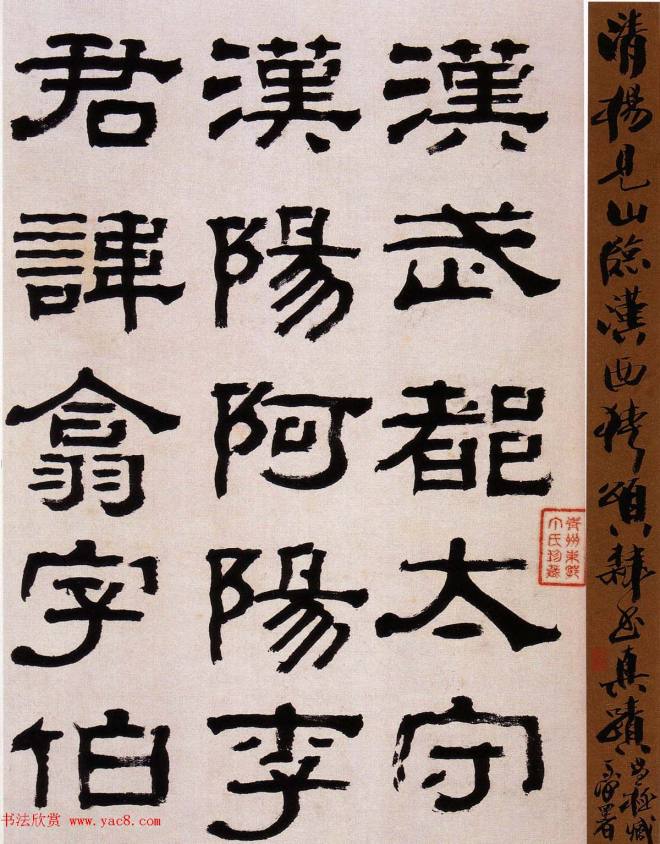 清楊見山臨漢西狹頌隸書真蹟
漢武都太守
漢陽阿陽李
君諱翕字伯
书法欣赏 www.yac8.com